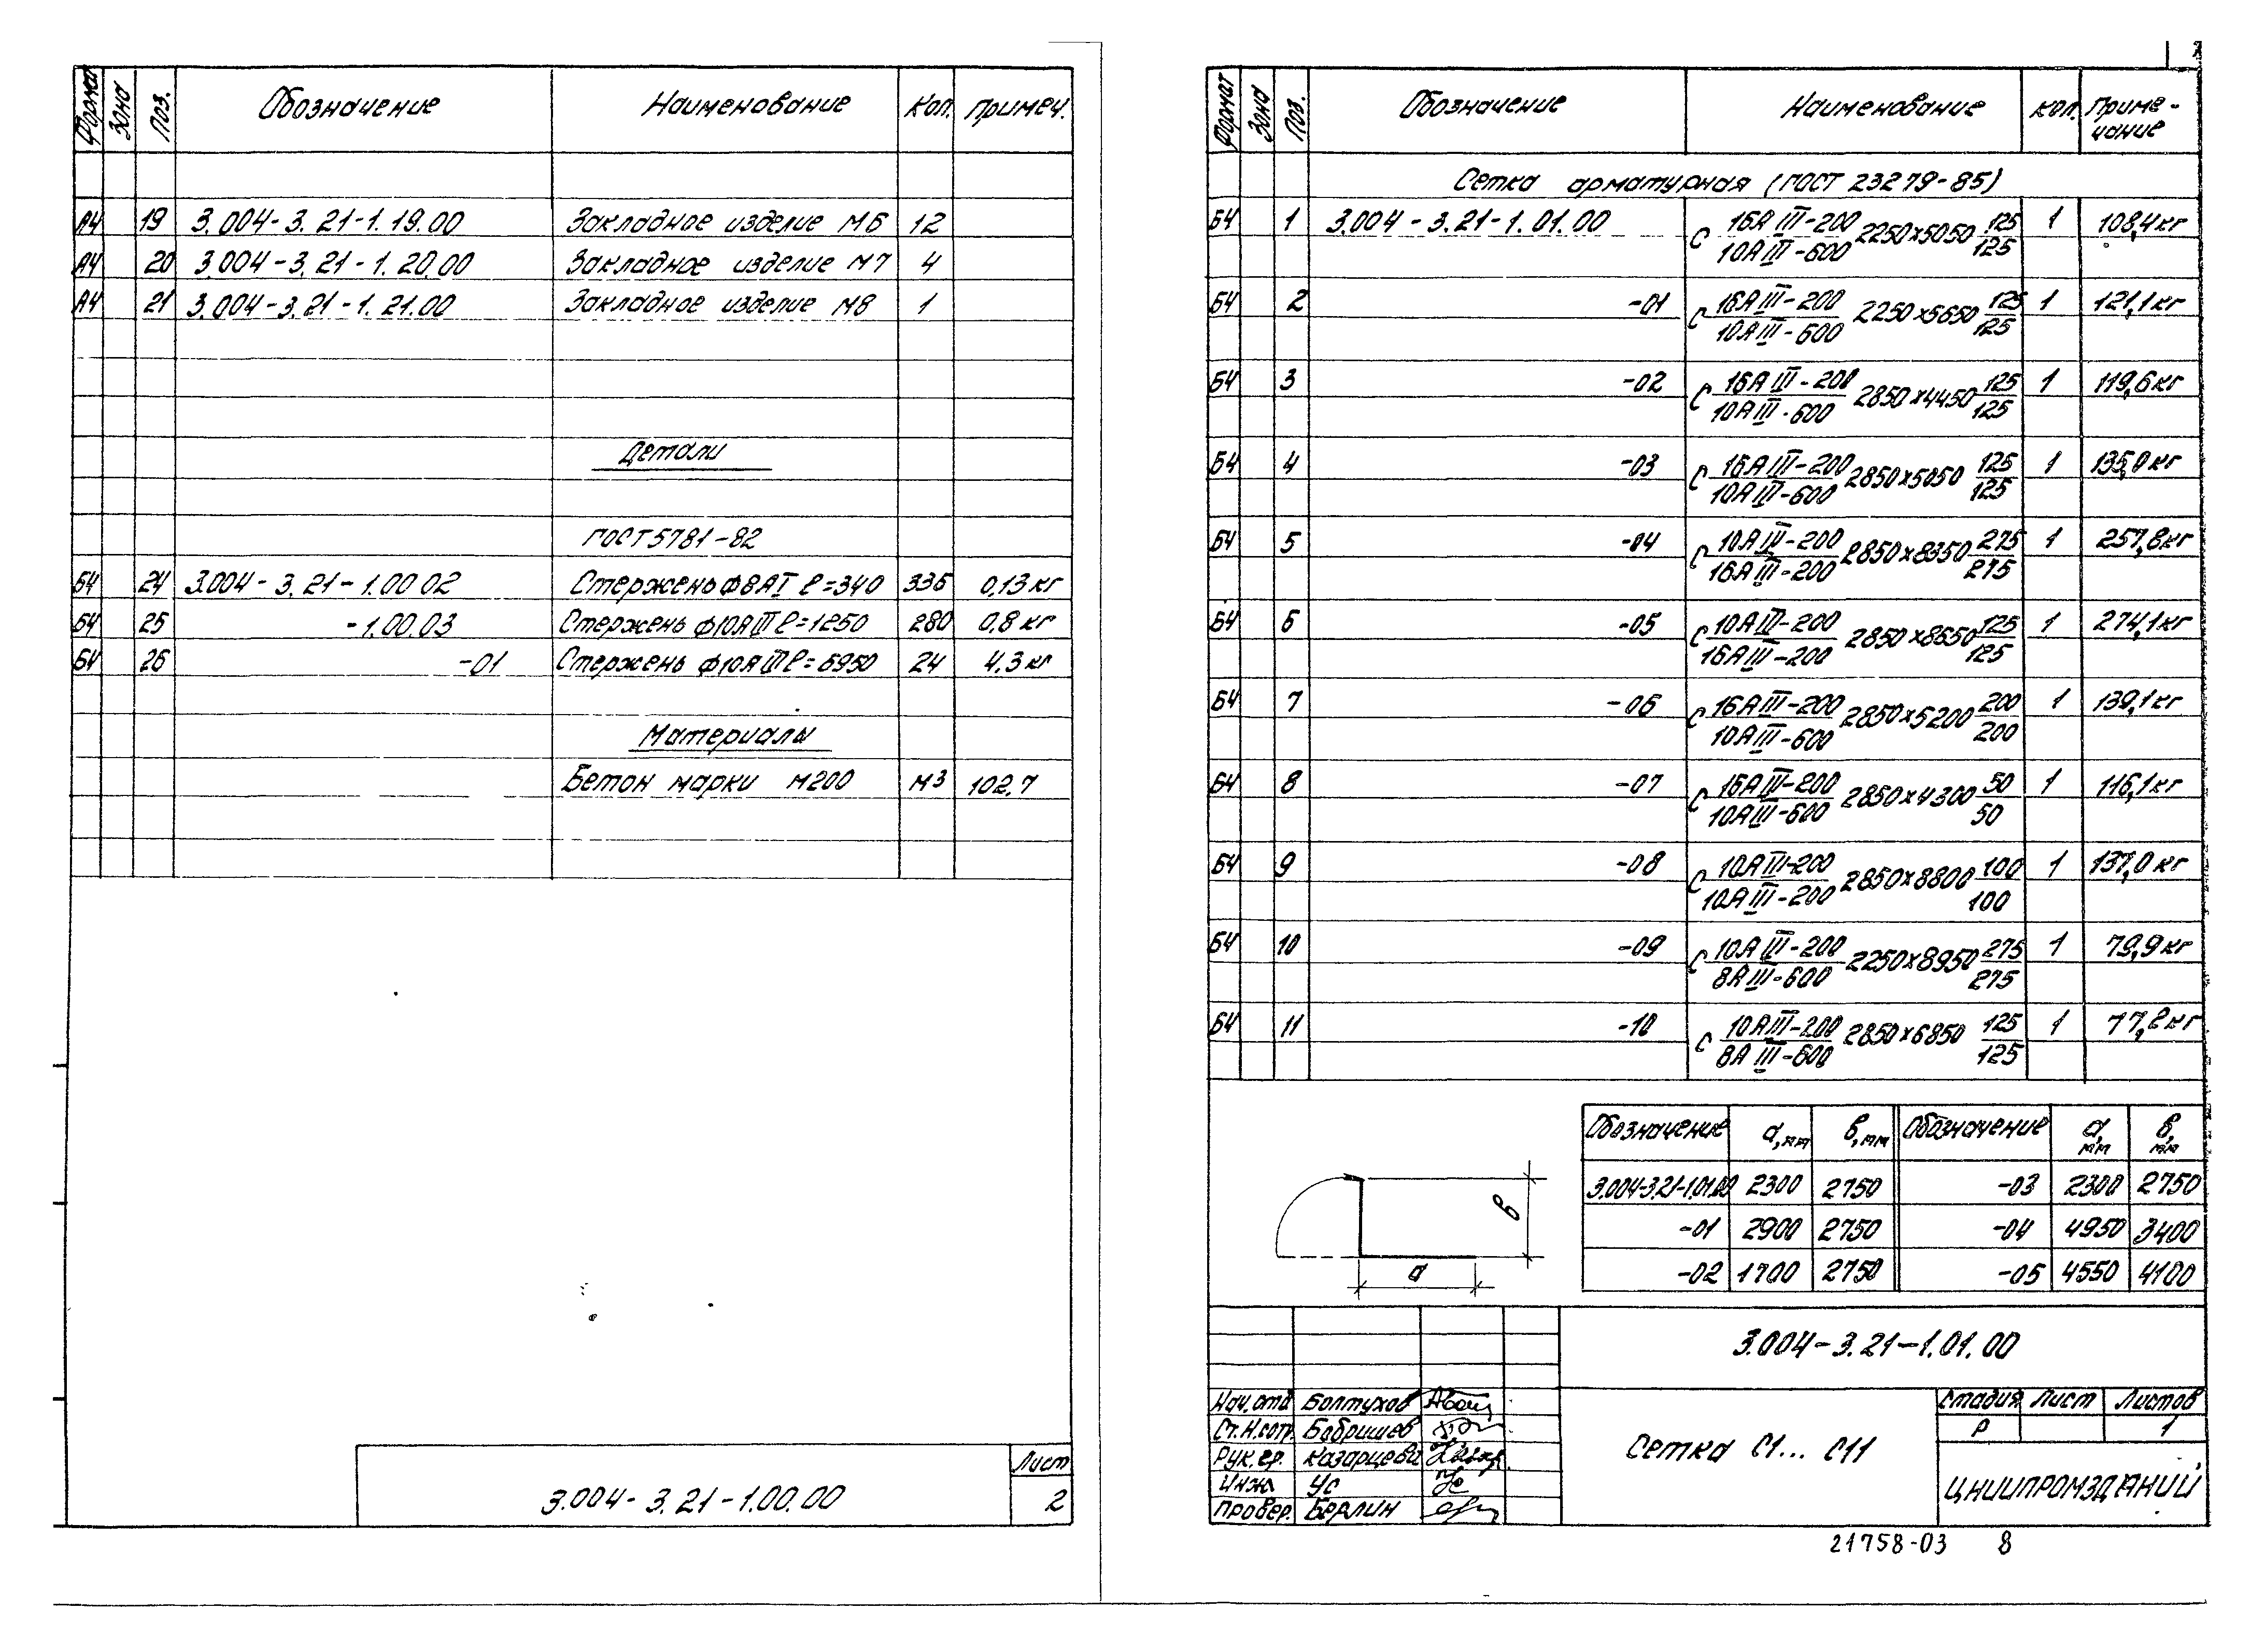 Формат Зона Поз. Обозначение Наименование Кол. Примеч.
А4 19 3.004-3.21-1.19.00 Закладное изделие М6 12
А4 20 3.004-3.21-1.20.00 Закладное изделие М7 4
А4 21 3.004-3.21-1.21.00 Закладное изделие М8 1
Детали
ГОСТ 5781-82
Б4 24 3.004-3.21-1.00.02 Стержень ф8АI ℓ=340 336 0,13 кг
Б4 25 -1.00.03 Стержень ф10АIII ℓ=1250 280 0.8 кг
Б4 26 -01 Стержень ф10АIII ℓ=6950 24 4.3 кг
Материалы
Бетон марки М200 м3 102.7
Лист
3.004-3.21-1.00.00 2
7
Формат Зона Поз. Обозначение Наименование Кол. Приме-
чание
Сетка арматурная (ГОСТ 23279-85)
Б4 1 3.004-3.21-1.01.00 С 16АIII-200/10АIII-600 2250×5050 125/125 1 108,4кг
Б4 2 -01 С 16АIII-200/10АIII-600 2250×5650 125/125 1 121,1кг
Б4 3 -02 С 16АIII-200/10АIII-600 2850×4450 125/125 1 119,6кг
Б4 4 -03 С 16АIII-200/10АIII-600 2850×5050 125/125 1 135,0кг
Б4 5 -04 С 10АIII-200/16АIII-200 2850×8350 275/275 1 257,8кг
Б4 6 -05 С 10АIII-200/16АIII-200 2850×8650 125/125 1 274,1кг
Б4 7 -06 С 16АIII-200/10АIII-600 2850×5200 200/200 1 139,1кг
Б4 8 -07 С 16АIII-200/10АIII-600 2850×4300 50/50 1 116,1кг
Б4 9 -08 С 10АIII-200/10АIII-200 2850×8800 100/100 1 137,0кг
Б4 10 -09 С 10АIII-200/8АIII-600 2250×8950 275/275 1 79,9кг
Б4 11 -10 С 10АIII-200/8АIII-600 2850×6850 125/125 1 77,2кг
Обозначение а,мм в,мм Обозначение а, мм в, мм
3.004-3.21-1.01.00 2300 2750 -03 2300 2750
-01 2900 2750 -04 4950 3400
-02 1700 2750 -05 4550 4100
в
а
3.004-3.21-1.01.00
Нач.отд Болтухов
Ст.Н.сотр. Бобришев
Рук.гр. Казарцева
Инж Ус
Провер. Берлин
Сетка С1... С11
Стадия Лист Листов
Р 1
ЦНИИПРОМЗДАНИЙ
21758-03 8